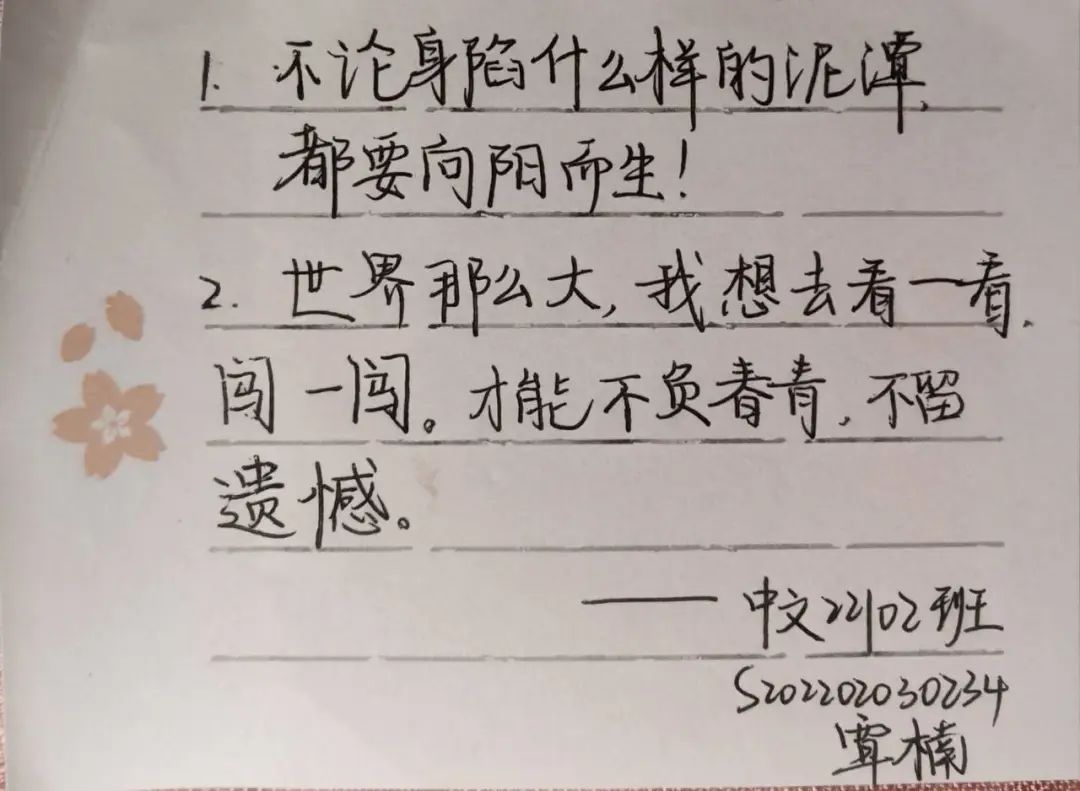 1. 不论身陷什么样的泥潭,
都要向阳而生!
2. 世界那么大,我想去看一看,
闯一闯。才能不负春青,不留
遗憾。
——中文2202班
S202202030234
覃楠